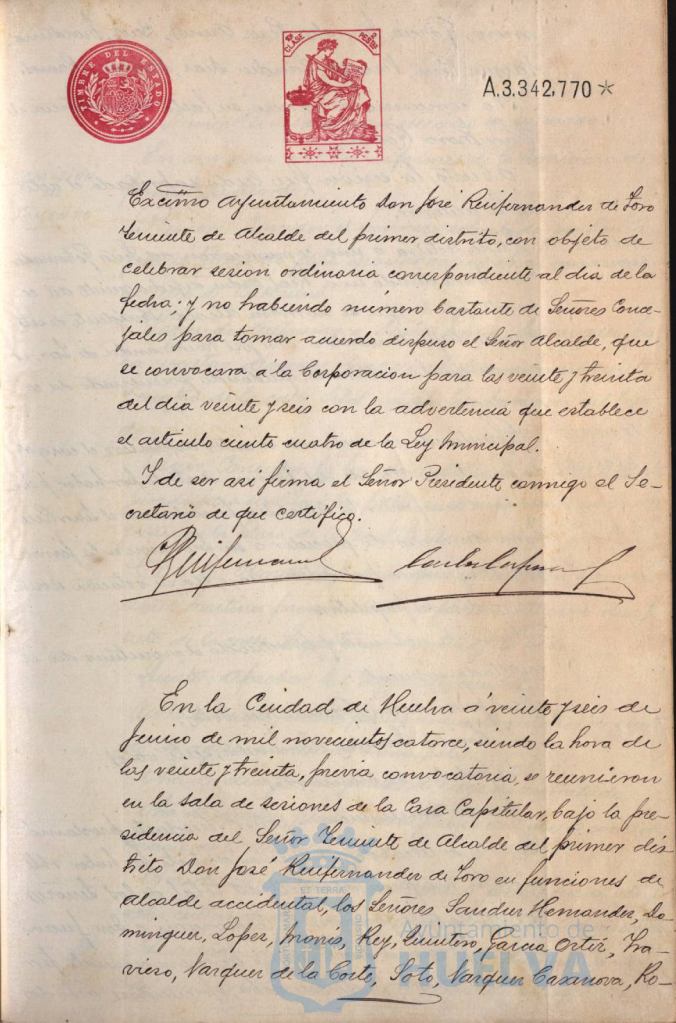 TIMBRE DEL ESTADO
10ª CLASE 2 PESETAS
A.3.342,770 *
Excmo Ayuntamiento Don José Ruifernandez de Toro
Teniente de Alcalde del primer distrito, con objeto de
celebrar sesion ordinaria correspondiente al dia de la
fecha; y no habiendo número bastante de Señores Conce-
jales para tomar acuerdo dispuso el Señor Alcalde, que
se convocara á la Corporacion para las veinte y treinta
del dia veinte y seis con la advertencia que establece
el articulo ciento cuatro de la Ley Municipal.
Y de ser asi firma el Señor Presidente conmigo el Se-
cretario de que certifico.
En la Ciudad de Huelva á veinte y seis de
Junio de mil novecientos catorce, siendo la hora de
las veinte y treinta, previa convocatoria, se reunieron
en la sala de sesiones de la Casa Capitular, bajo la pre-
sidencia del Señor Teniente de Alcalde del primer dis-
trito Don José Ruifernandez de Toro en funciones de
alcalde accidental, los Señores Sanchez Hernandez, Do-
minguez, Lopez, Monis, Rey, Quintero, Garcia Ortiz, Tra-
vieso, Vazquez de la Corte, Soto, Vazquez Casanova, Ro-
Ayuntamiento de
HUELVA